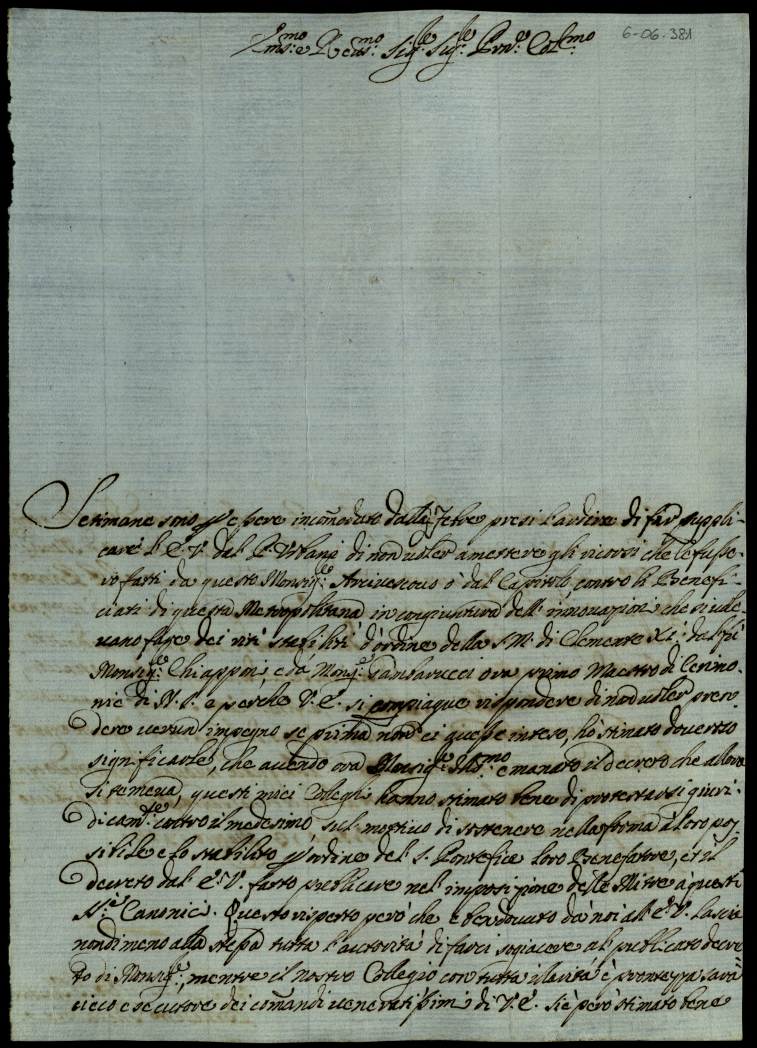 6-06.381
Em:mo e Reu:mo Sig:re Sig:re Pron:e Col:mo
Setimane sono p essere incom̄odato dalla Febre presi l'ardire di far suppli-
care l'E.V. dal P. Urbano di non uoler amettere gli ricorsi che le fusse-
ro fatti da questo Monsig:re Arciuescouo o dal Capitolo contro li Benefi-
ciati di questa Metropolitana in congiuntura dell' innouazioni che si uole-
uano fare dei riti stabiliti d'ordine della S. M. di Clemente XI: dal fù
Monsig:re Chiapponi, e da Mons:re Gambarucci ora primo Maestro di Cerimo-
nie di N. S. e perche V. E. si compiaque rispondere di non uoler pren-
dere uerun impegno se prima non ci auesse inteso, hò stimato douerlo
significarle, che auendo ora Monsig:re Ill:mo emanato il decreto che allora
si temeua, questi miei Colleghi hanno stimato bene di protestarsi giuri-
dicam:te contro il medesimo sul mottiuo di sostenere nella forma à loro pos-
sibile e lo stabilito p ordine del S. Pontefice loro Benefatore, et il
decreto dal E. V. fatto publicare nel imposizione delle Mitre à questi
SS:ri Canonici. Questo rispetto però che è ben douuto da noi all' E. V. lascia
nondimeno alla stessa tutta l'autorità di farci sogiacere al publicato decre-
to di Monsig:re, mentre il nostro Collegio con tutta ilarità e prontezza sarà
cieco esecutore dei com̄andi ueneratissimi di V. E. Si è però stimato bene